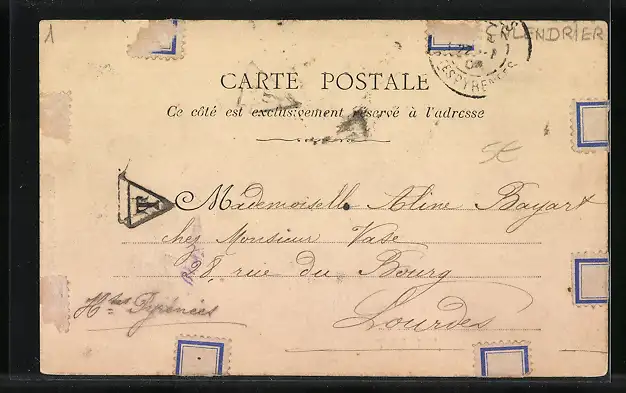 1
CALENDRIER
CARTE POSTALE
Ce côté est exclusivement réservé à l'adresse
5€
Mademoiselle Aline Bayart
chez Monsieur Vase
98, rue du Bourg
Htes Pyrénées
Lourdes